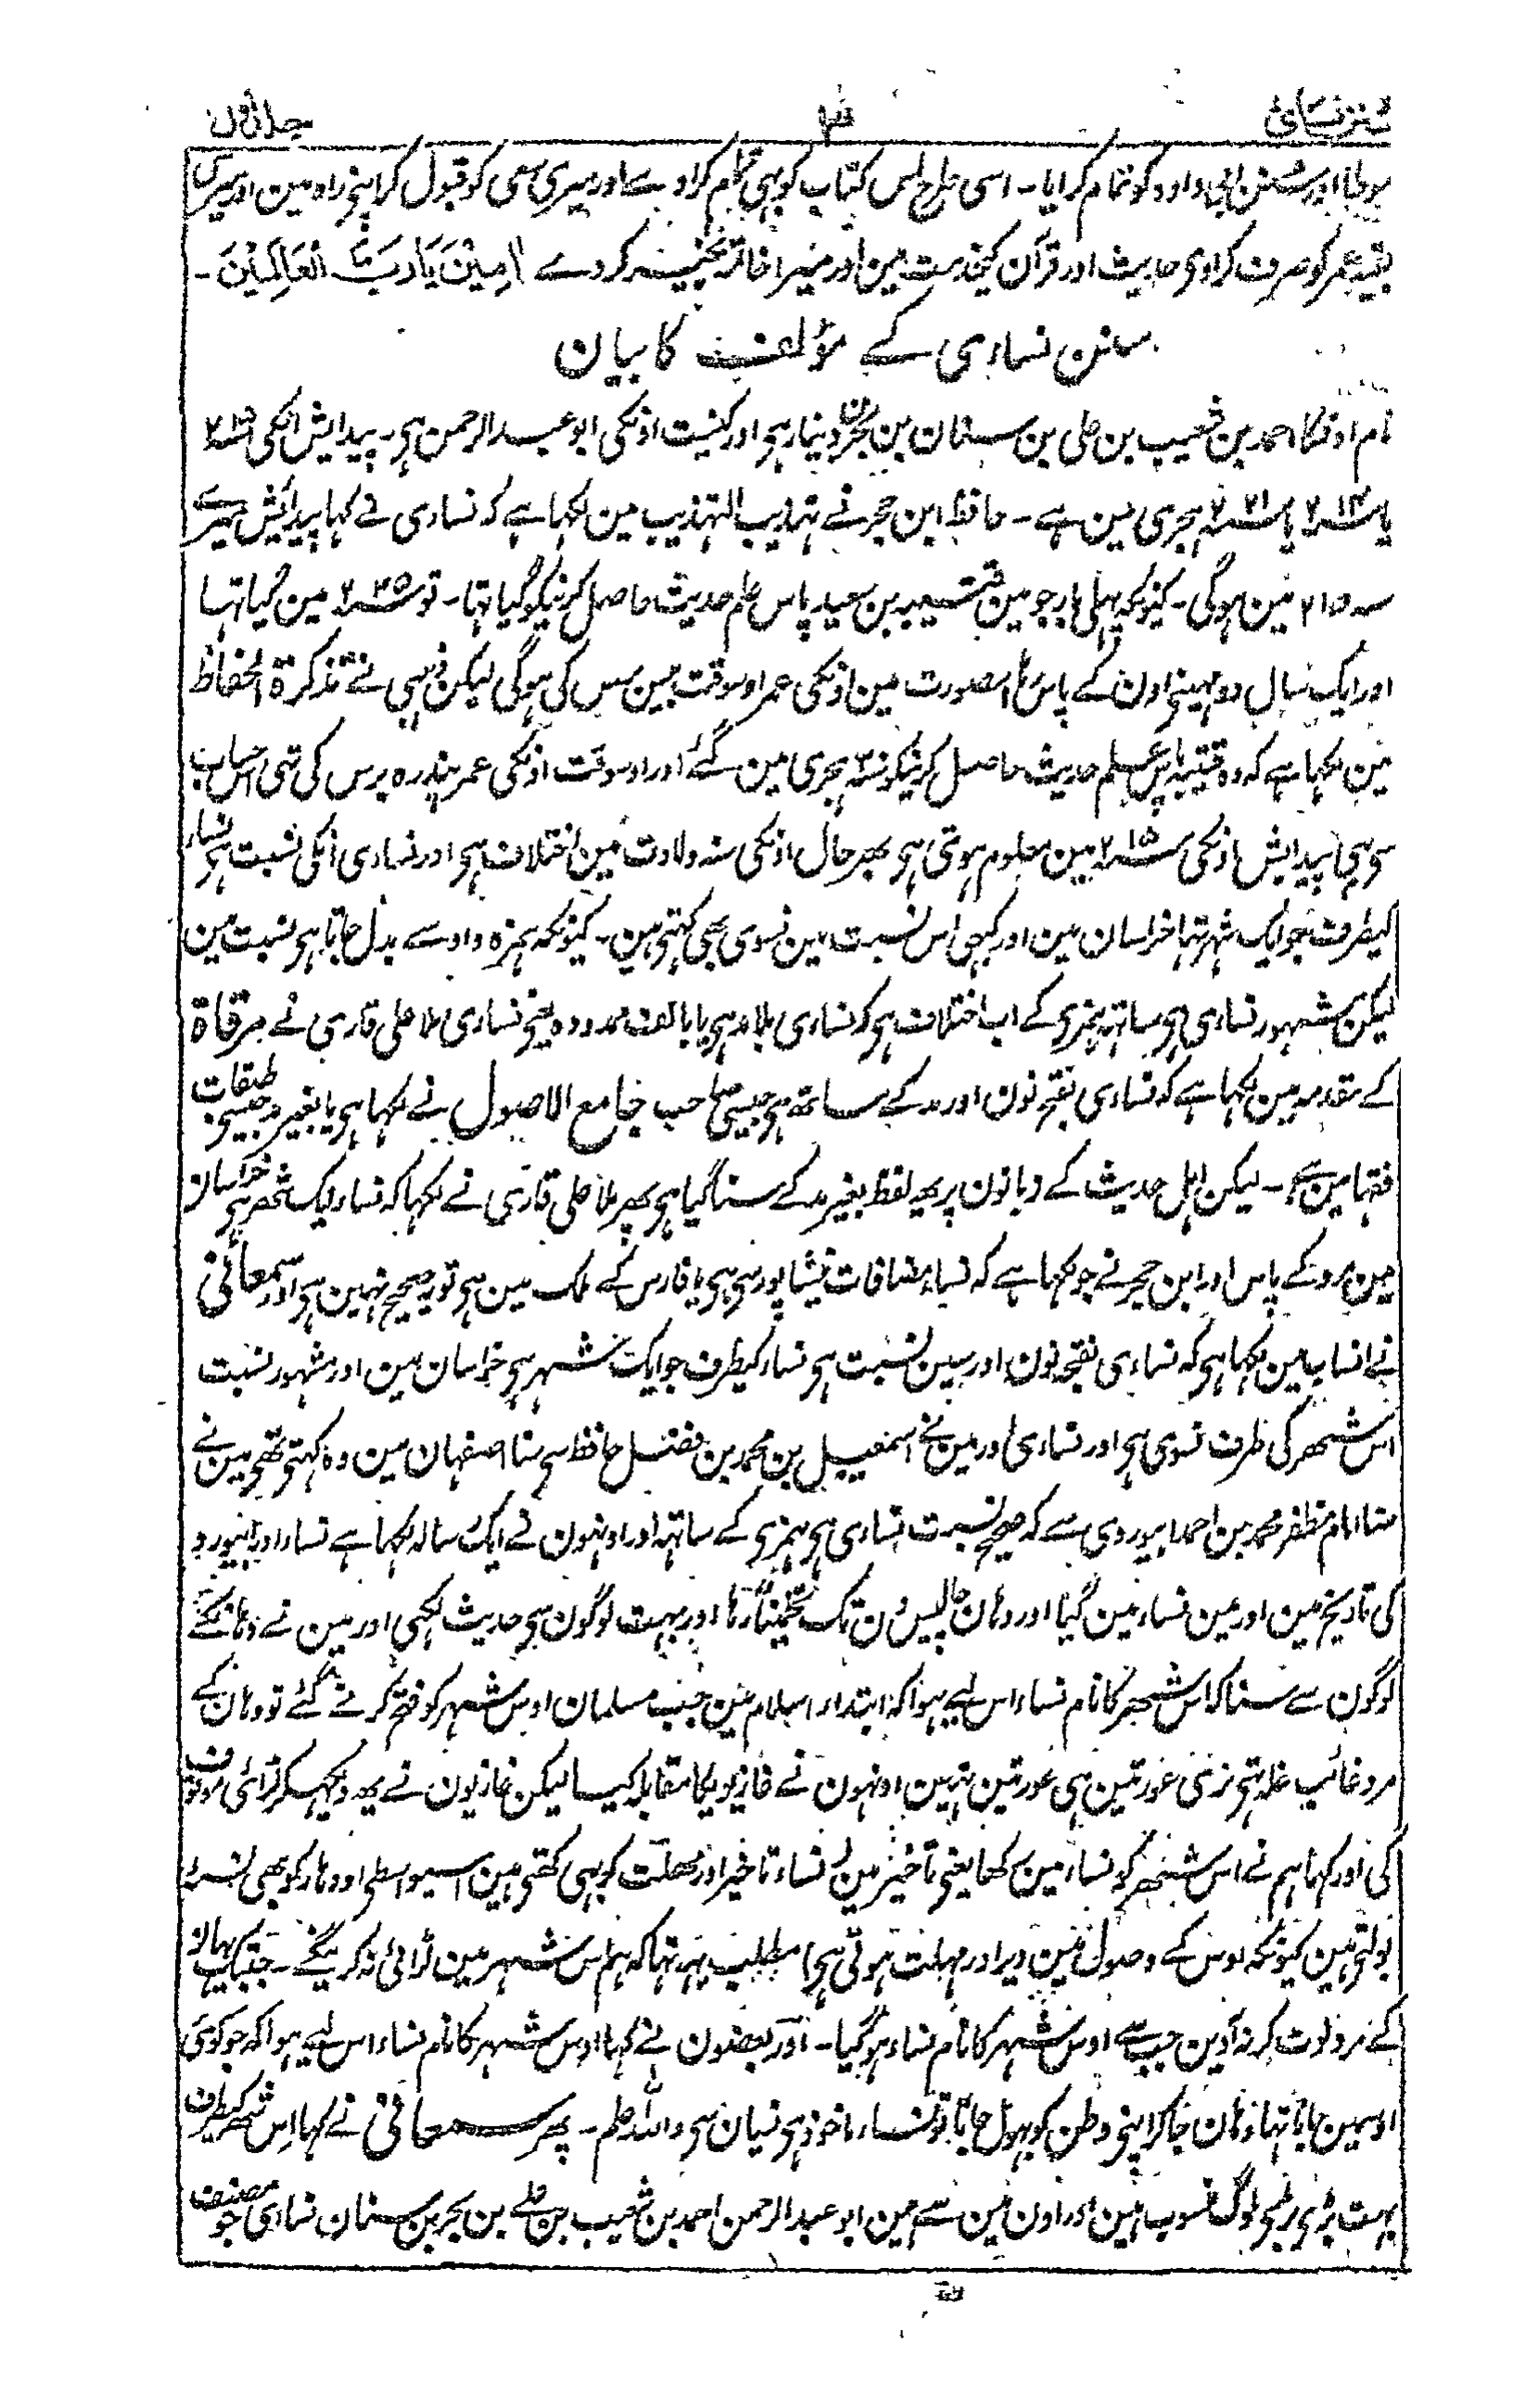 سنن نسائی
۳
جلد اول
موطا اور سنن ابی داود کو تمام کرایا۔ اسی طرح اس کتاب کو بہی تمام کرا دے اور میری سعی کو قبول کر اپنی راہ مین اور میری
بقیہ عمر کو صرف کرا دی حدیث اور قرآن کیخدمت مین اور میرا خاتمہ بخیر کر دے اٰمِیْنَ یَا رَبَّ الْعَالَمِیْنَ۔
سنن نساءی کے مؤلف کا بیان
نام اونکا احمد بن شعیب بن علی بن سنان بن بحر بن دینار ہی اور کنیت اونکی ابو عبد الرحمن ہی۔ پیدایش انکی
یا ۲۱۴ یا ہجری مین ہے۔ حافظ ابن حجر نے تہذیب التہذیب مین لکہا ہے کہ نساءی نے کہا پیدایش میرے
سنہ ۲۱۵ مین ہوگی۔ کیونکہ پہلی بار جو مین قتیبہ بن سعید پاس علم حدیث حاصل کرنیکو گیا تہا۔ تو مین گیا تہا
اور ایک سال دو مہینی اون کے پاس رہا اسصورت مین اونکی عمر اوسوقت بیس برس کی ہوگی لیکن ذہبی نے تذکرۃ الحفاظ
مین لکہا ہے کہ وہ قتیبہ پاس علم حدیث حاصل کرنیکو ہجری مین گئے اور اوسوقت اونکی عمر پندرہ برس کی تہی اس حساب
سی بہی پیدایش اونکی ۲۱۵ مین معلوم ہوتی ہی بہر حال اونکی سنہ ولادت مین اختلاف ہی اور نساءی انکی نسبت ہی نساء
کیطرف جو ایک شہر تہا خراسان مین اور کبہی اس نسبت مین نسوی بہی کہتی ہین۔ کیونکہ ہمزہ واو سے بدل جاتا ہی نسبت مین
لیکن مشہور نساءی ہی ساتہہ ہمزی کے اب اختلاف ہی کہ نساءی بلا مد ہی یا بالف ممدودہ یعنی نساءی ملا علی قاری نے مرقاۃ
کے مقدمہ مین لکہا ہے کہ نساءی بفتح نون اور مد کے ساتہ ہی جیسی صاحب جامع الاصول نے لکہا ہی یا بغیر مد جیسی طبقات
فقہا مین ہے۔ لیکن اہل حدیث کے زبانون پر یہہ لفظ بغیر مد کے سنا گیا ہی پہر ملا علی قاری نے لکہا کہ نساء ایک شہر ہی خراسان
مین مرو کے پاس اور ابن حجر نے جو لکہا ہے کہ نساء مضافات نیشاپور سی ہی یا فارس کے ملک مین ہی تو یہ صحیح نہین ہی اور سمعانی
نے انساب مین لکہا ہی کہ نساءی بفتح نون اور سین نسبت ہی نساء کیطرف جو ایک شہر ہی خراسان مین اور مشہور نسبت
اس شہر کی طرف نسوی ہی اور نساءی اور مین نے اسمعیل بن محمد بن فضل حافظ سی سنا اصفہان مین وہ کہتی تہی مین نے
سنا امام مظفر محمد بن احمد ابیوردی سے کہ صحیح نسبت نساءی ہی ہمزی کے ساتہہ اور اونہون نے ایک رسالہ لکہا ہے نساء اور ابیورد
کی تاریخ مین اور مین نساء مین گیا اور وہان چالیس دن تک تخمیناً رہا اور بہت لوگون سی حدیث لکہی اور مین نے وہانکے
لوگون سے سنا کہ اس شہر کا نام نساء اس لیے ہوا کہ ابتداء اسلام مین جب مسلمان اوس شہر کو فتح کرنے گئے تو وہان کے
مرد غائب نری عورتین ہی عورتین تہین اونہون نے غازیونکا مقابلہ کیا لیکن غازیون نے یہہ دیکہکر لڑائی موقوف
کی اور کہا ہم نے اس شہر کو نساء مین رکہا یعنی تاخیر مین نساء تاخیر اور مہلت کو بہی کہتی ہین اسیواسطی اودہار کو بہی
بولتی ہین کیونکہ اوس کے وصول مین دیر اور مہلت ہوتی ہی) مطلب یہہ تہا کہ ہم اس شہر مین لڑائی نہ کرینگے۔ جبتک یہان
کے مرد لوٹ کر نہ آوین جب سے اوس شہر کا نام نساء ہوگیا۔ اور بعضون نے کہا اوس شہر کا نام نساء اس لیے ہوا کہ جو کوئی
اوسمین جاتا تہا وہان جا کر اپنی وطن کو بہول جاتا تو نساء ماخوذ ہی نسیان سی واللہ اعلم۔ پہر سمعانی نے کہا اِس شہر کیطرف
بہت بڑی بڑی لوگ منسوب ہین اور اون مین سے ہین ابو عبد الرحمن احمد بن شعیب بن علے بن بحر بن سنان نساءی جو مصنف